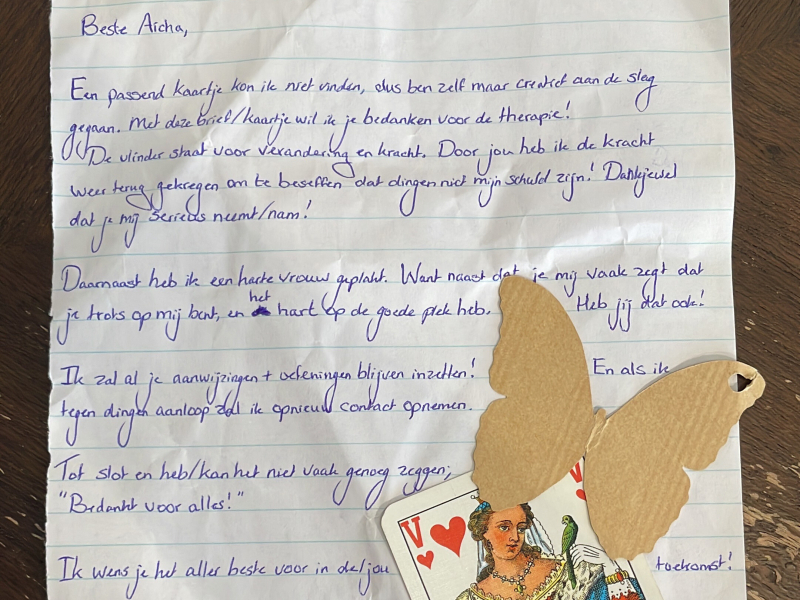 Beste Aicha,
Een passend kaartje kon ik niet vinden, dus ben zelf maar creatief aan de slag
gegaan. Met deze brief/kaartje wil ik je bedanken voor de therapie!
De vlinder staat voor verandering en kracht. Door jou heb ik de kracht
weer terug gekregen om te beseffen dat dingen niet mijn schuld zijn! Dankjewel
dat je mij serieus neemt/nam!
Daarnaast heb ik een harte vrouw geplakt. Want naast dat je mij vaak zegt dat
je trots op mij bent, en het hart op de goede plek heb. Heb jij dat ook!
Ik zal al je aanwijzingen + oefeningen blijven inzetten! En als ik
tegen dingen aanloop zal ik opnieuw contact opnemen.
Tot slot en heb/kan het niet vaak genoeg zeggen;
"Bedankt voor alles!"
Ik wens je het aller beste voor in de/jou toekomst!
V
V